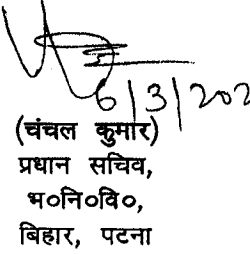 6/3/202
(चंचल कुमार)
प्रधान सचिव,
भ०नि०वि०,
बिहार, पटना